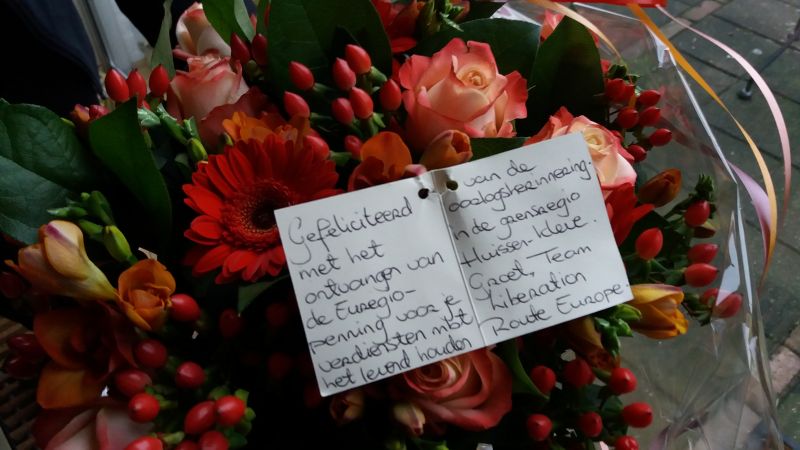 Gefeliciteerd
met het
ontvangen van
de Euregio-
penning voor je
verdiensten mbt
het levend houden
van de
oorlogsherinnering
in de grensregio
Huissen-Kleve.
Groet, Team
Liberation
Route Europe.